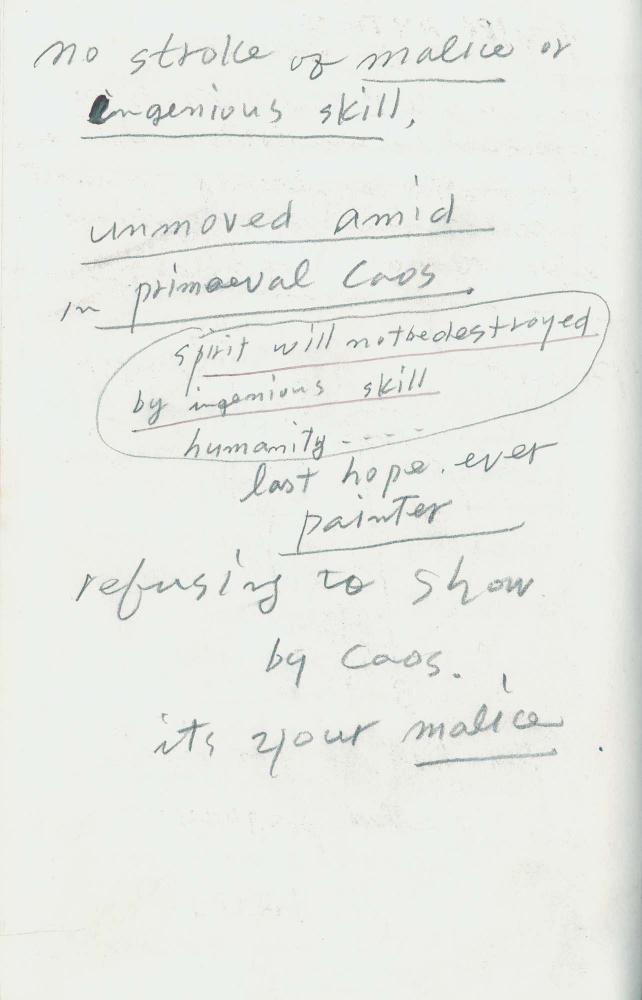 no stroke of malice or
ingenious skill,
unmoved amid
in primaeval Caos.
spirit will notbedestroyed
by ingenious skill
humanity - - - -
last hope. ever
painter
refusing to show
by Caos.
its your malice.